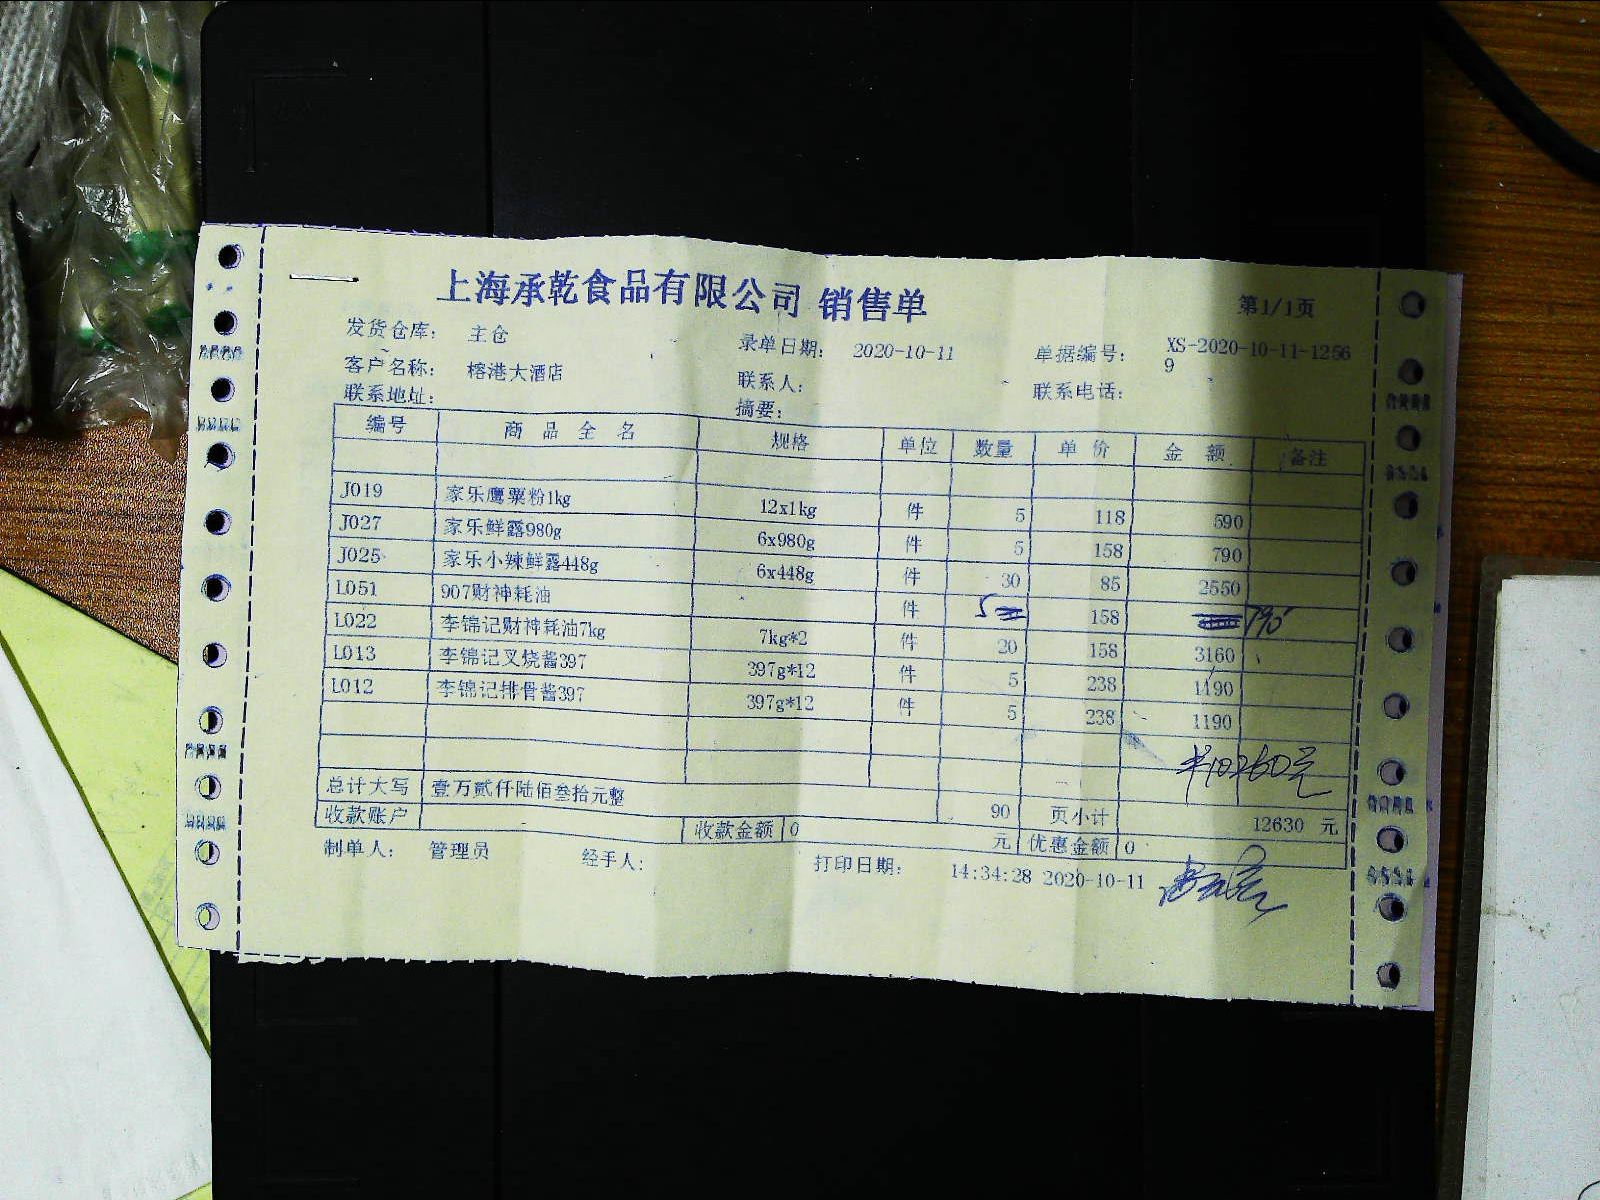 上海承乾食品有限公司 销售单
第1/1页
发货仓库: 主仓 录单日期: 2020-10-11 单据编号: XS-2020-10-11-12569
客户名称: 榕港大酒店 联系人: 联系电话:
联系地址: 摘要:
编号 商品全名 规格 单位 数量 单价 金额 备注
J019 家乐鹰粟粉1kg 12x1kg 件 5 118 590
J027 家乐鲜露980g 6x980g 件 5 158 790
J025 家乐小辣鲜露448g 6x448g 件 30 85 2550
L051 907财神耗油 件 5 158 790
L022 李锦记财神耗油7kg 7kg*2 件 20 158 3160
L013 李锦记叉烧酱397 397g*12 件 5 238 1190
L012 李锦记排骨酱397 397g*12 件 5 238 1190
¥10260元
总计大写 壹万贰仟陆佰叁拾元整 90 页小计 12630 元
收款账户 收款金额 0 元 优惠金额 0
制单人: 管理员 经手人: 打印日期: 14:34:28 2020-10-11